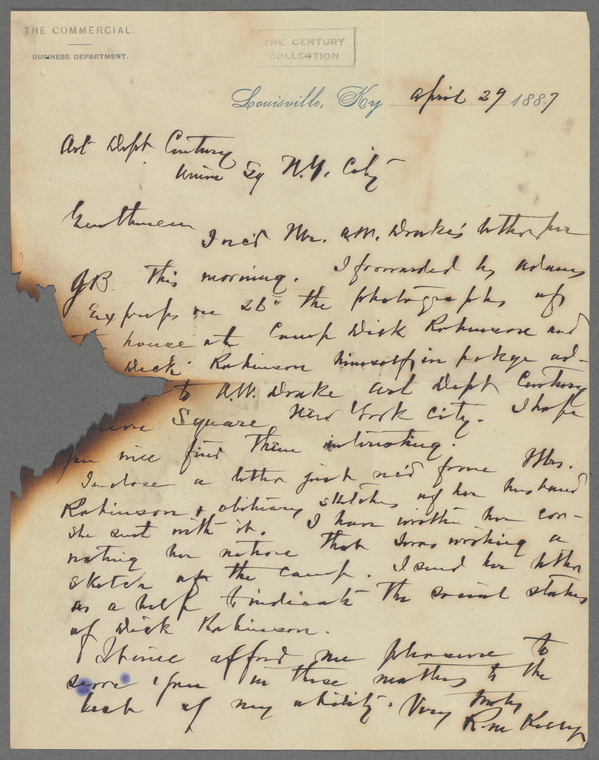 THE COMMERCIAL.
BUSINESS DEPARTMENT.
THE CENTURY
COLLECTION
Louisville, Ky April 29 1887
Art Dept Century
Union Sq N.Y. City
Gentlemen
I rec'd Mr. A.W. Drake's letter per
GB this morning. I forwarded by Adams
Ex prefs on 26" the photographs of
house at Camp Dick Robinson and
Dick Robinson himself, in pakge ad-
to A.W. Drake Art Dept Century
Square New York City. I hope
you will find them interesting.
Inclose a letter just rec'd from Mrs.
Robinson & obituary sketches of her husband
she sent with it. I have written her con-
notice that I was writing a
sketch of the camp. I send her letter
as a help to indicate the social status
of Dick Robinson.
It will afford me pleasure to
serve you in these matters to the
best of my ability. Very truly
R.M. Kelly